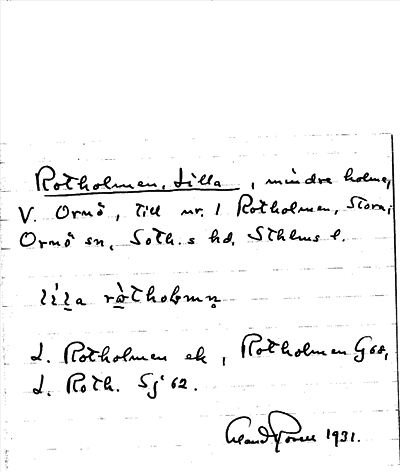 Rotholmen, Lilla, mindre holme,
V. Ornö, till nr. 1 Rotholmen, Stora;
Ornö sn, Soth.s hd, Sthlms l.
lìla rò̱tholmn̥
L. Rotholmen ek, Rotholmen G68,
L. Roth. Sj 62.
1931.